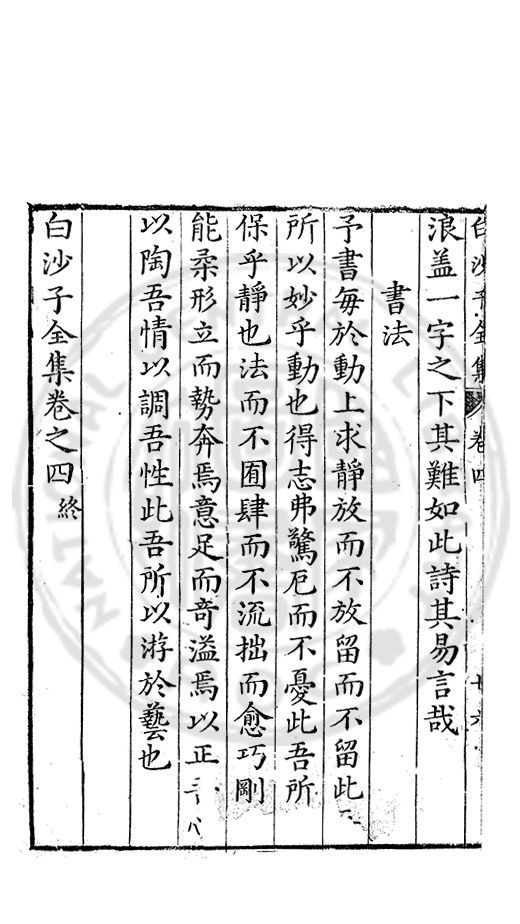 白沙子全集 卷四 廿六
浪盖一字之下其難如此詩其易言哉
書法
予書每於動上求靜放而不放留而不留此
所以妙乎動也得志弗驚厄而不憂此吾所
保乎靜也法而不囿肆而不流拙而愈巧剛
能柔形立而勢奔焉意足而竒溢焉以正
以陶吾情以調吾性此吾所以游於藝也
白沙子全集卷之四終